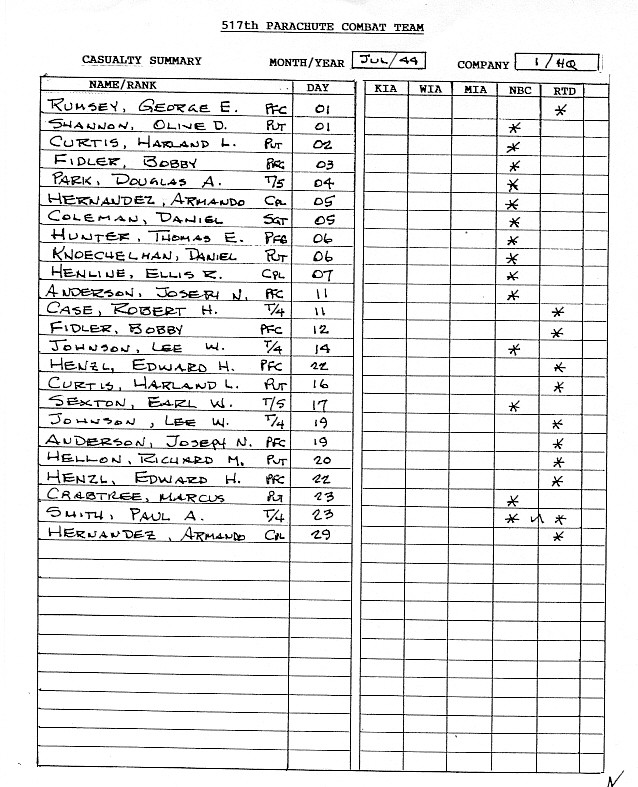 517th PARACHUTE COMBAT TEAM
CASUALTY SUMMARY MONTH/YEAR JUL/44 COMPANY 1/HQ
NAME/RANK DAY KIA WIA MIA NBC RTD
RUMSEY, GEORGE E. PFC 01 *
SHANNON, OLINE D. PVT 01 *
CURTIS, HARLAND L. PVT 02 *
FIDLER, BOBBY PFC 03 *
PARK, DOUGLAS A. T/5 04 *
HERNANDEZ, ARMANDO CPL 05 *
COLEMAN, DANIEL SGT 05 *
HUNTER, THOMAS E. PFC 06 *
KNOECHELMAN, DANIEL PVT 06 *
HENLINE, ELLIS R. CPL 07 *
ANDERSON, JOSEPH N. PFC 11 *
CASE, ROBERT H. T/4 11 *
FIDLER, BOBBY PFC 12 *
JOHNSON, LEE W. T/4 14 *
HENZL, EDWARD H. PFC 22 *
CURTIS, HARLAND L. PVT 16 *
SEXTON, EARL W. T/5 17 *
JOHNSON, LEE W. T/4 19 *
ANDERSON, JOSEPH N. PFC 19 *
HELLON, RICHARD M. PVT 20 *
HENZL, EDWARD H. PFC 22 *
CRABTREE, MARCUS PVT 23 *
SMITH, PAUL A. T/4 23 * *
HERNANDEZ, ARMANDO CPL 29 *